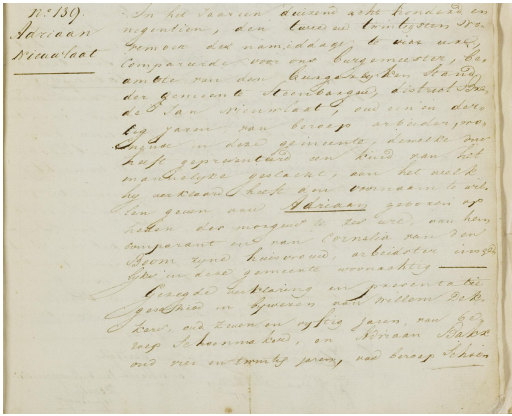 No 139.
Adriaan
Nieuwlaat
In het jaar een duizend acht honderd en
negentien, den twee en twintigsten
des namiddags te vier ure,
compareerde voor ons Burgemeester, be-
ambte van den Burgerlyken Stand
der gemeente Steenbergen, district
de Jan Nieuwlaat, oud een en der-
tig jaren van beroep arbeider, wo-
nende in deze gemeente, dewelke ons
heeft gepresenteerd een kind van het
mannelyke geslacht, aan het welk
hy verklaard heeft den voornaam te wil-
len geven van Adriaan geboren op
heden des morgens te zes ure, van hem
comparant en van Cornelia van den
Boom zyne huisvrouw, arbeidster
in deze gemeente woonachtig
Gezegde verklaring en presentatie
geschied in bywezen van Willem Dek-
ker, oud zeven en vyftig jaren, van be-
roep en Adriaan Bakx
oud vier en twintig jaren, van beroep Schoen